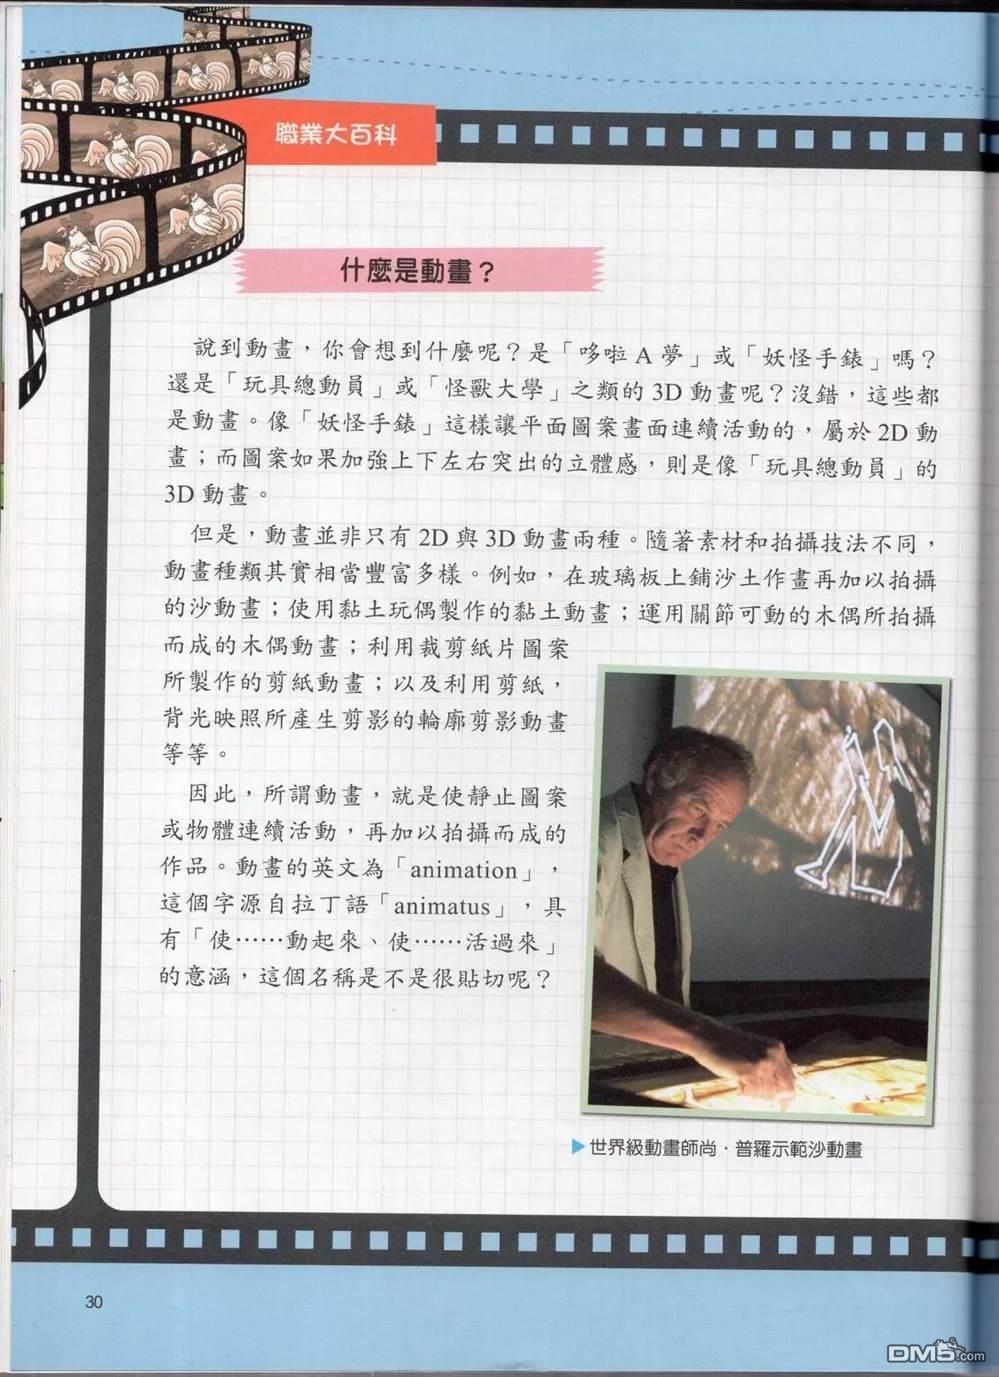 職業大百科
什麼是動畫？
說到動畫，你會想到什麼呢？是「哆啦A夢」或「妖怪手錶」嗎？
還是「玩具總動員」或「怪獸大學」之類的3D動畫呢？沒錯，這些都
是動畫。像「妖怪手錶」這樣讓平面圖案畫面連續活動的，屬於2D動
畫；而圖案如果加強上下左右突出的立體感，則是像「玩具總動員」的
3D動畫。
但是，動畫並非只有2D與3D動畫兩種。隨著素材和拍攝技法不同，
動畫種類其實相當豐富多樣。例如，在玻璃板上鋪沙土作畫再加以拍攝
的沙動畫；使用黏土玩偶製作的黏土動畫；運用關節可動的木偶所拍攝
而成的木偶動畫；利用裁剪紙片圖案
所製作的剪紙動畫；以及利用剪紙，
背光映照所產生剪影的輪廓剪影動畫
等等。
因此，所謂動畫，就是使靜止圖案
或物體連續活動，再加以拍攝而成的
作品。動畫的英文為「animation」，
這個字源自拉丁語「animatus」，具
有「使……動起來、使……活過來」
的意涵，這個名稱是不是很貼切呢？
▶世界級動畫師尚·普羅示範沙動畫
30
DM5.com